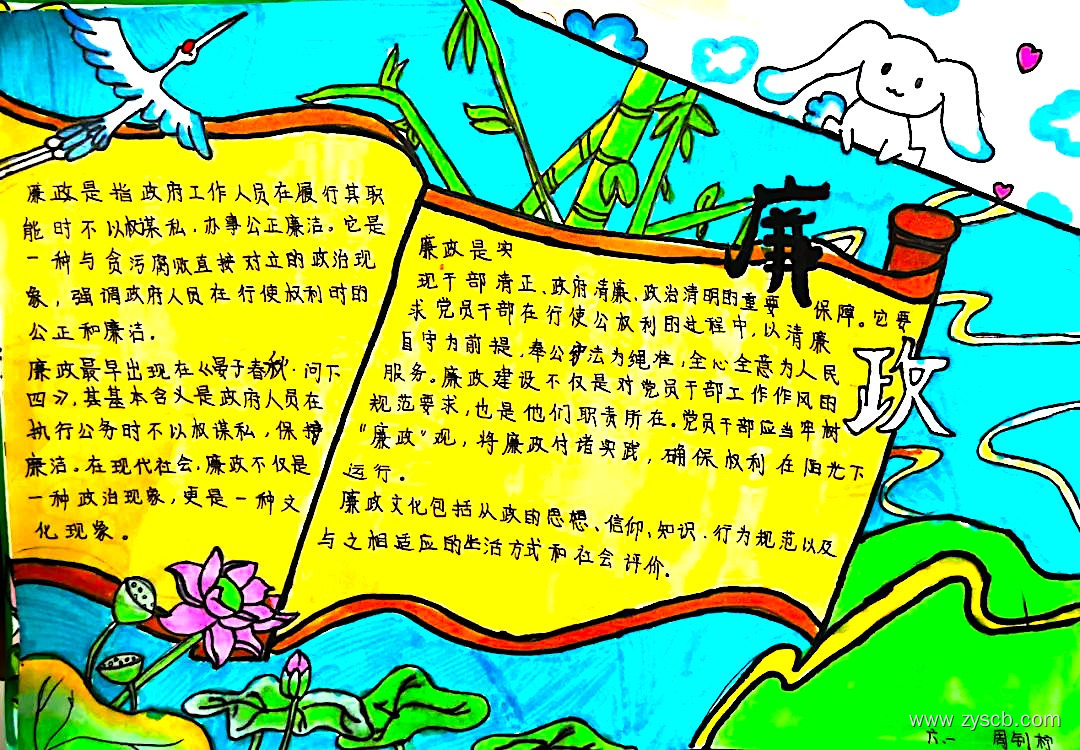 廉政是指政府工作人员在履行其职
能时不以权谋私，办事公正廉洁。它是
一种与贪污腐败直接对立的政治现
象，强调政府人员在行使权利时的
公正和廉洁.
廉政最早出现在《晏子春秋·问下
四》，其基本含义是政府人员在
执行公务时不以权谋私，保持
廉洁。在现代社会，廉政不仅是
一种政治现象，更是一种文
化现象。
廉政是实
现干部清正、政府清廉、政治清明的重要保障。它要
求党员干部在行使公权利的过程中，以清廉
自守为前提，奉公守法为绳准，全心全意为人民
服务。廉政建设不仅是对党员干部工作作风的
规范要求，也是他们职责所在。党员干部应当牢树
“廉政”观，将廉政付诸实践，确保权利在阳光下
运行。
廉政文化包括从政的思想、信仰、知识、行为规范以及
与之相适应的生活方式和社会评价.
廉
政
www.zyscb.com
六.一